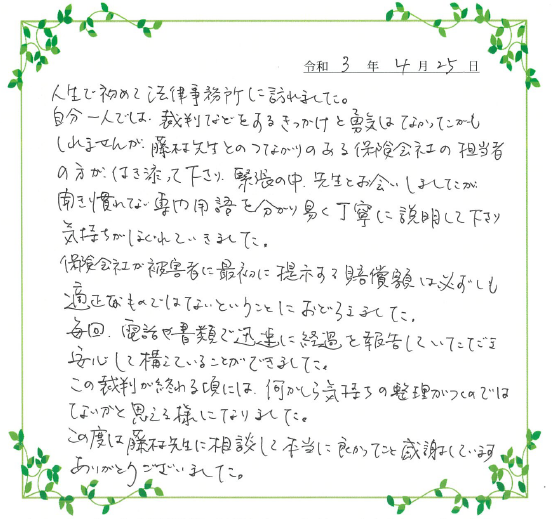 令和 3 年 4 月 25 日
人生で初めて法律事務所に訪れました。
自分一人では、裁判などをするきっかけと勇気はなかったかも
しれませんが、藤村先生とのつながりのある保険会社の担当者
の方が、付き添って下さり、緊張の中、先生とお会いしましたが
聞き慣れない専門用語を分かり易く丁寧に説明して下さり
気持ちがほぐれていきました。
保険会社が被害者に最初に提示する賠償額は必ずしも
適正なものではないということにおどろきました。
毎回、電話や書類で迅速に経過を報告していただき
安心して構えていることができました。
この裁判が終わる頃には、何かしら気持ちの整理がつくのでは
ないかと思える様になりました。
この度は藤村先生に相談して本当に良かったことと感謝しています
ありがとうございました。